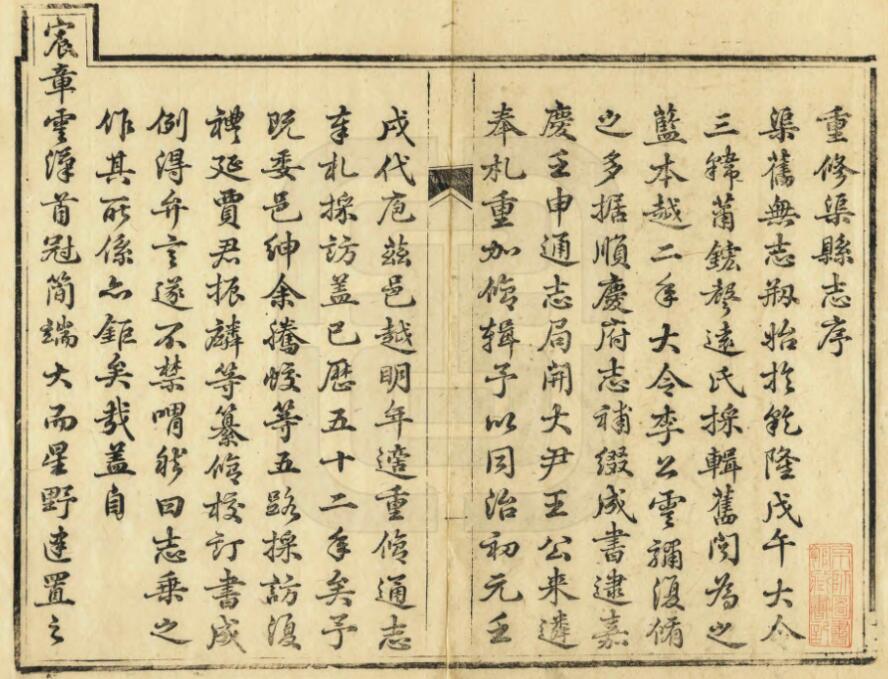 重修渠縣志序
渠舊無志刱始於乾隆戊午大令
三韓蕭鋐聲遠氏採輯舊聞為之
藍本越二年大令李公雲復脩
之多据順慶府志補綴成書逮嘉
慶壬申通志局開大尹王公來遴
奉札重加脩輯予以同治初元壬
戌代庖茲邑越明年適重脩通志
奉札採訪蓋已歷五十二年矣予
既委邑紳余騰蛟等五路採訪復
禮延賈君振麟等纂脩校訂書成
例得弁言遂不禁喟然曰志乘之
作其所係亦鉅矣哉蓋自
宸章雲漢首冠簡端大而星野建置之
一